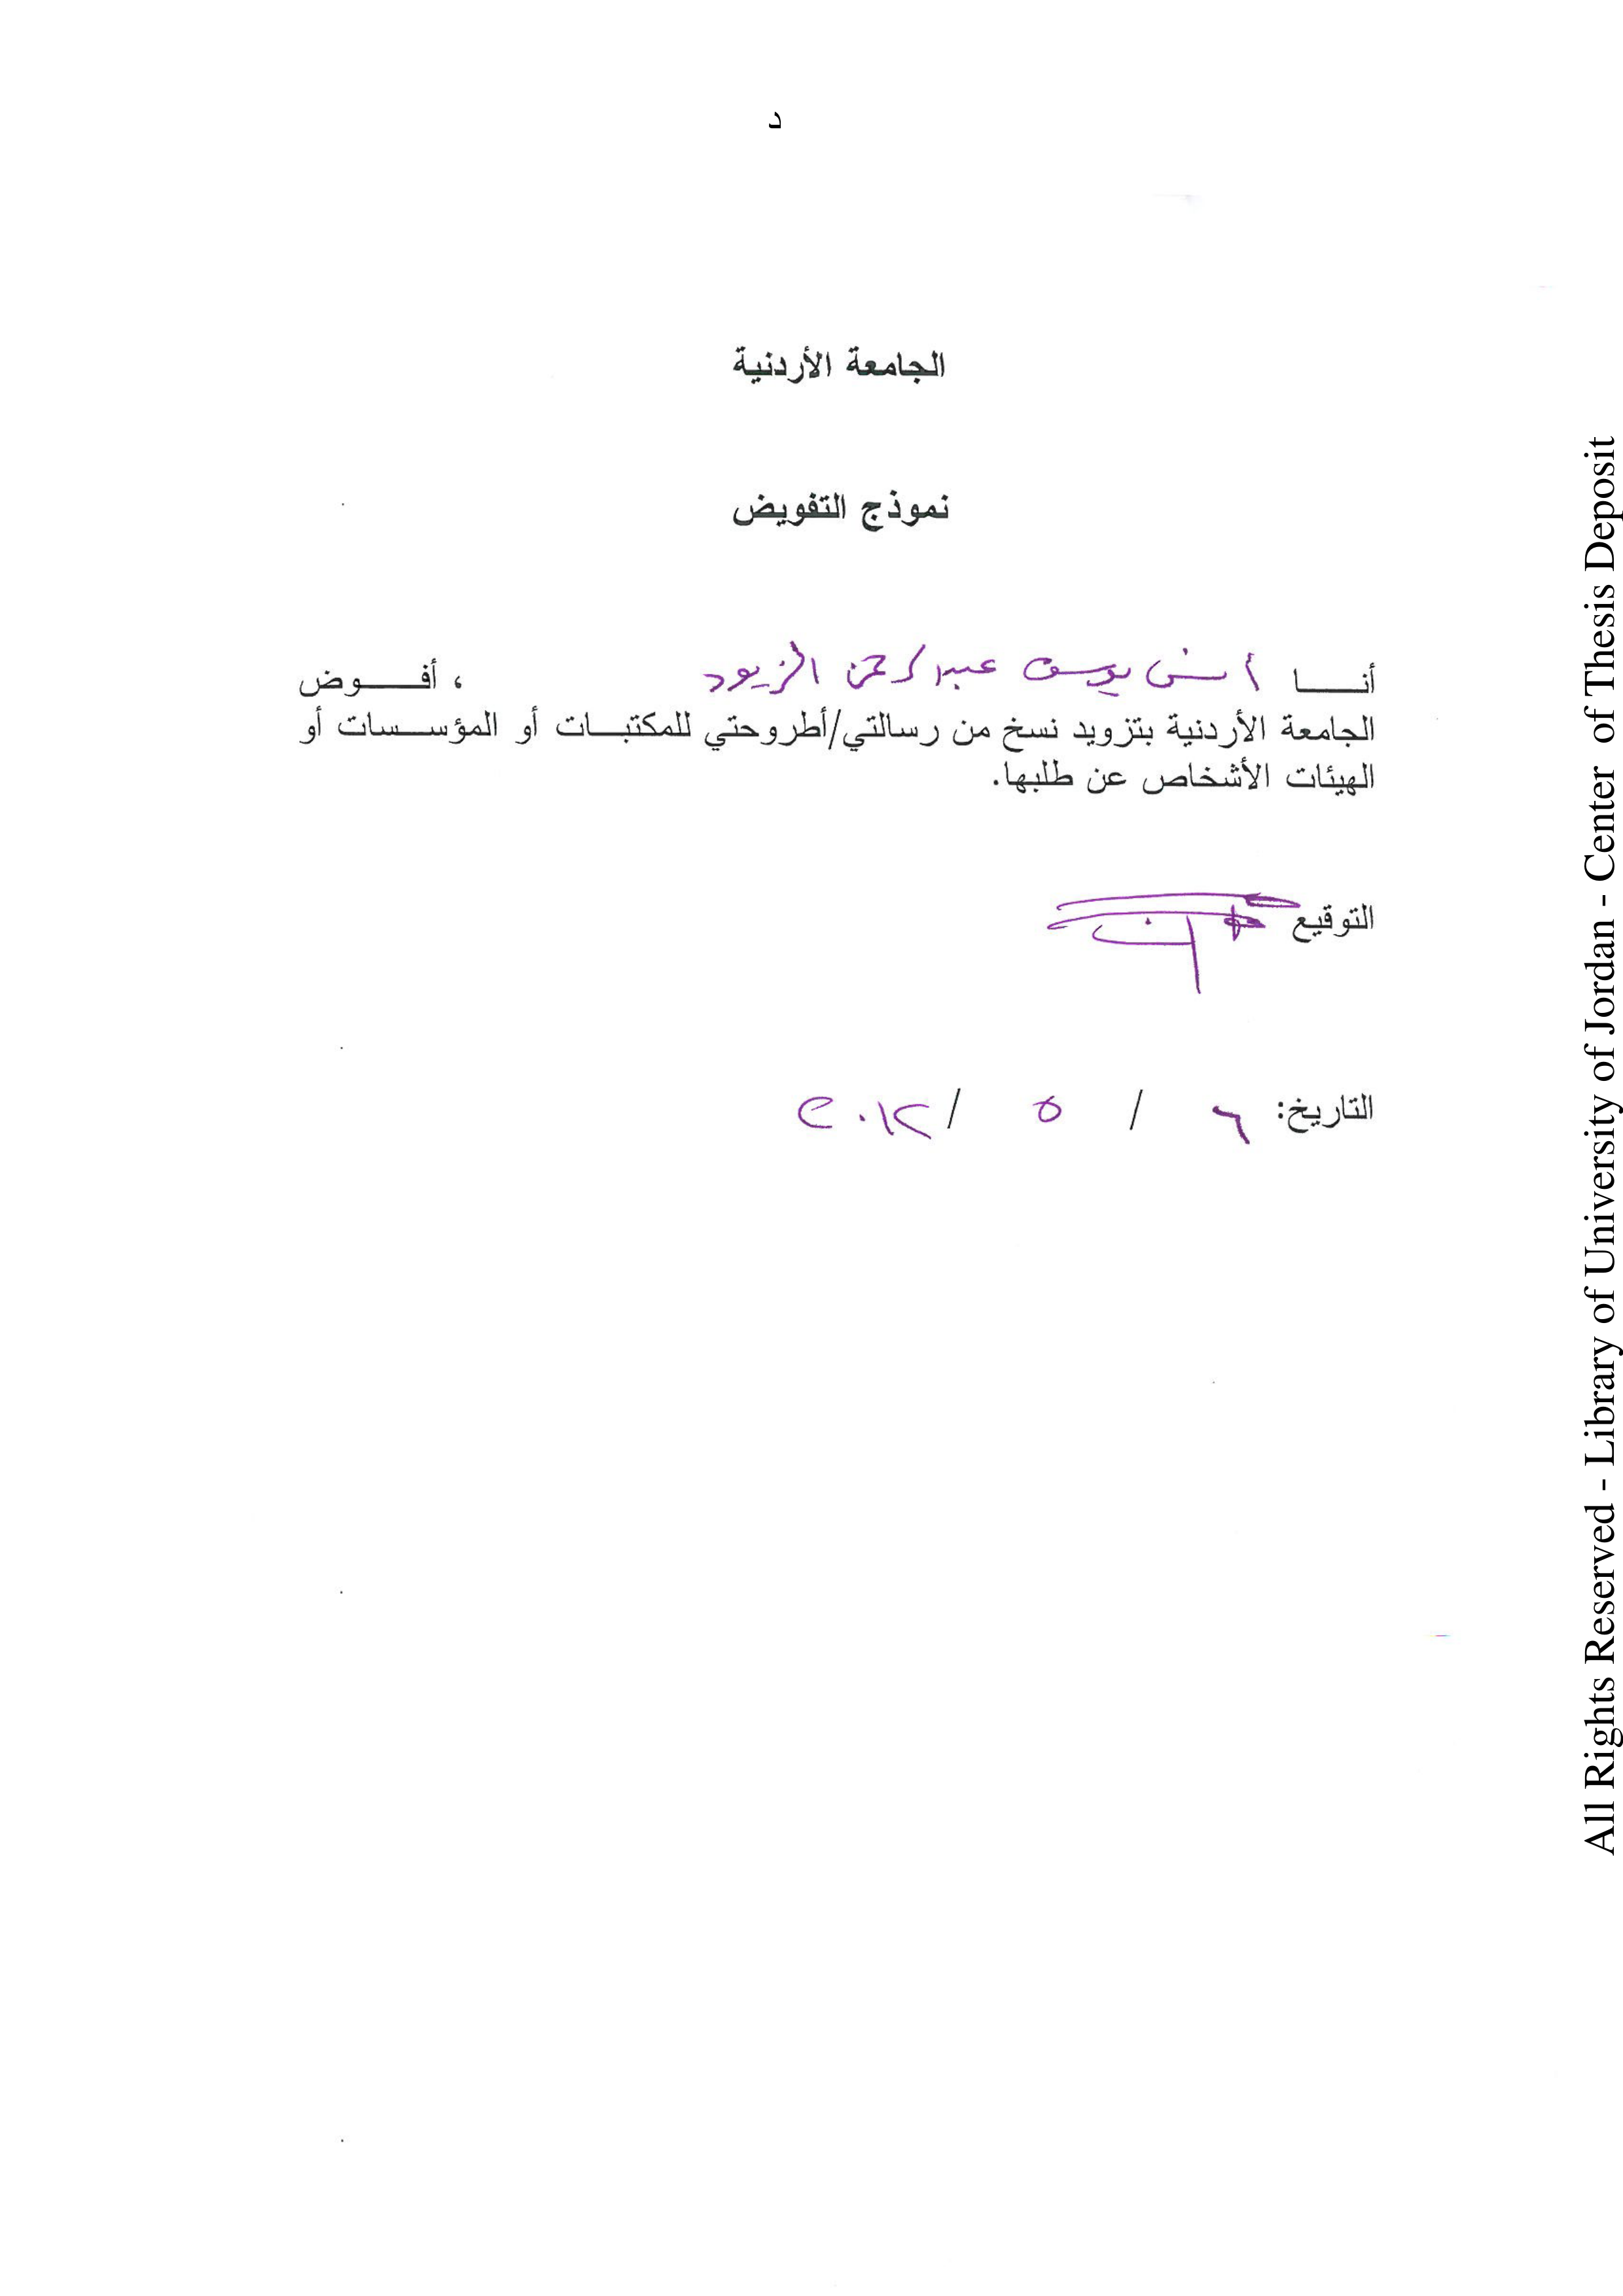 د
الجامعة الأردنية
نموذج التفويض
أنـــا أنس يوسف عبدالرحمن الزيود ، أفــوض
الجامعة الأردنية بتزويد نسخ من رسالتي/أطروحتي للمكتبــات أو المؤســسات أو
الهيئات الأشخاص عن طلبها.
التوقيع
التاريخ: ٦ / ٥ / ٢٠١٢
All Rights Reserved - Library of University of Jordan - Center of Thesis Deposit